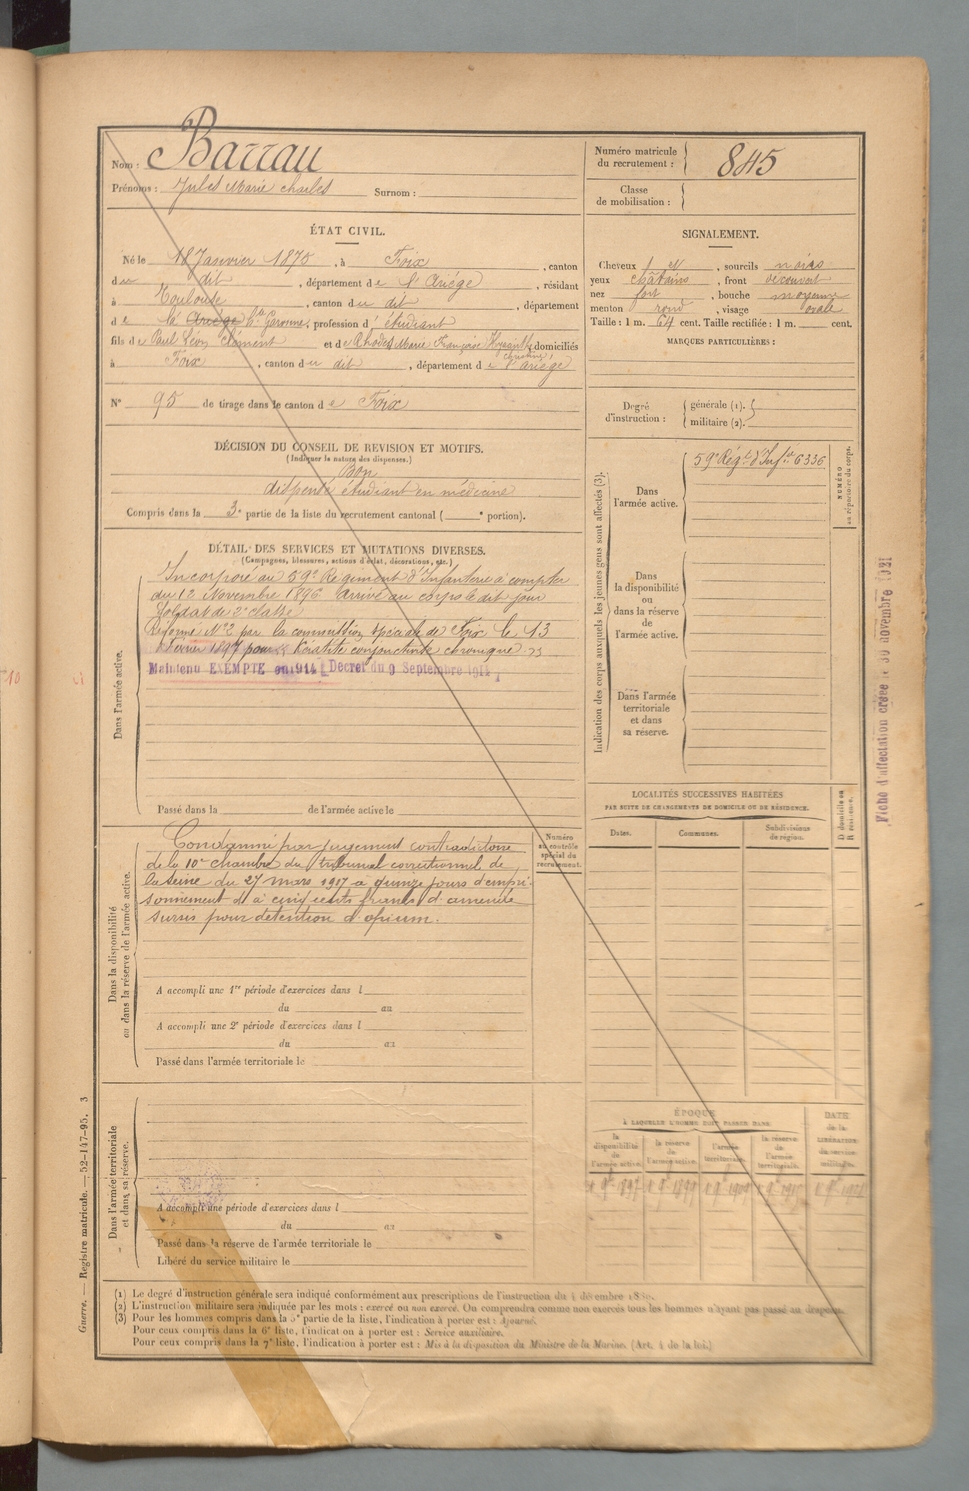 Nom : Barrau
Prénoms : Jules Marie Charles Surnom :
Numéro matricule du recrutement : 845
Classe de mobilisation :
ÉTAT CIVIL.
Né le 18 Janvier 1875, à Foix, canton
du dit, département de l'Ariège, résidant
à Toulouse, canton du dit, département
de la Ariège Hte Garonne, profession d'étudiant
fils de Paul Léon Clément et de Rhodes Marie Françoise domiciliés
à Foix, canton du dit, département de l'Ariège
N° 95 de tirage dans le canton de Foix
SIGNALEMENT.
Cheveux et, sourcils noirs
yeux châtains, front découvert
nez fort, bouche moyenne
menton rond, visage ovale
Taille : 1 m. 64 cent. Taille rectifiée : 1 m. cent.
MARQUES PARTICULIÈRES :
Degré d'instruction : générale (1). militaire (2).
DÉCISION DU CONSEIL DE REVISION ET MOTIFS.
(Indiquer la nature des dispenses.)
Bon
dispensé étudiant en médecine
Compris dans la 3e partie de la liste du recrutement cantonal ( e portion).
DÉTAIL DES SERVICES ET MUTATIONS DIVERSES.
(Campagnes, blessures, actions d'éclat, décorations, etc.)
Dans l'armée active.
Incorporé au 59e Régiment d'Infanterie à compter
du 12 Novembre 1896 Arrivé au corps le dit jour
Soldat de 2e classe
Réformé N°2 par la commission spéciale de Foix le 13
Février 1897 pour Kératite conjonctivite chronique
Maintenu EXEMPTÉ en 1914 Décret du 9 Septembre 1914
Passé dans la de l'armée active le
Numéro au contrôle spécial du recrutement.
Dans la disponibilité ou dans la réserve de l'armée active.
Condamné par jugement contradictoire
de la 10e chambre du tribunal correctionnel de
la Seine du 27 mars 1917 à quinze jours d'empri-
sonnement et à cinq cents francs d'amende
sursis pour détention d'opium.
A accompli une 1re période d'exercices dans l
du au
A accompli une 2e période d'exercices dans l
du au
Passé dans l'armée territoriale le
Dans l'armée territoriale et dans sa réserve.
A accompli une période d'exercices dans l
du au
Passé dans la réserve de l'armée territoriale le
Libéré du service militaire le
Indication des corps auxquels les jeunes gens sont affectés (3).
Dans l'armée active.
59e Régt d'Infie 6336
NUMÉRO au répertoire du corps.
Dans la disponibilité ou dans la réserve de l'armée active.
Dans l'armée territoriale et dans sa réserve.
LOCALITÉS SUCCESSIVES HABITÉES
PAR SUITE DE CHANGEMENTS DE DOMICILE OU DE RÉSIDENCE.
D domicile ou R résidence.
Dates. Communes. Subdivisions de région.
ÉPOQUE
À LAQUELLE L'HOMME DOIT PASSER DANS
DATE de la LIBÉRATION du service militaire.
la disponibilité de l'armée active.
la réserve de l'armée active.
l'armée territoriale.
la réserve de l'armée territoriale.
Fiche d'affectation créée le 30 novembre 1921
Guerre. — Registre matricule. — 52-147-95. 3
(1) Le degré d'instruction générale sera indiqué conformément aux prescriptions de l'instruction du 4 décembre
(2) L'instruction militaire sera indiquée par les mots : exercé ou non exercé. On comprendra comme non exercés tous les hommes n'ayant pas passé au drapeau.
(3) Pour les hommes compris dans la 5e partie de la liste, l'indication à porter est : Ajourné.
Pour ceux compris dans la 6e liste, l'indication à porter est : Service auxiliaire.
Pour ceux compris dans la 7e liste, l'indication à porter est : Mis à la disposition du Ministre de la Marine. (Art. 4 de la loi.)